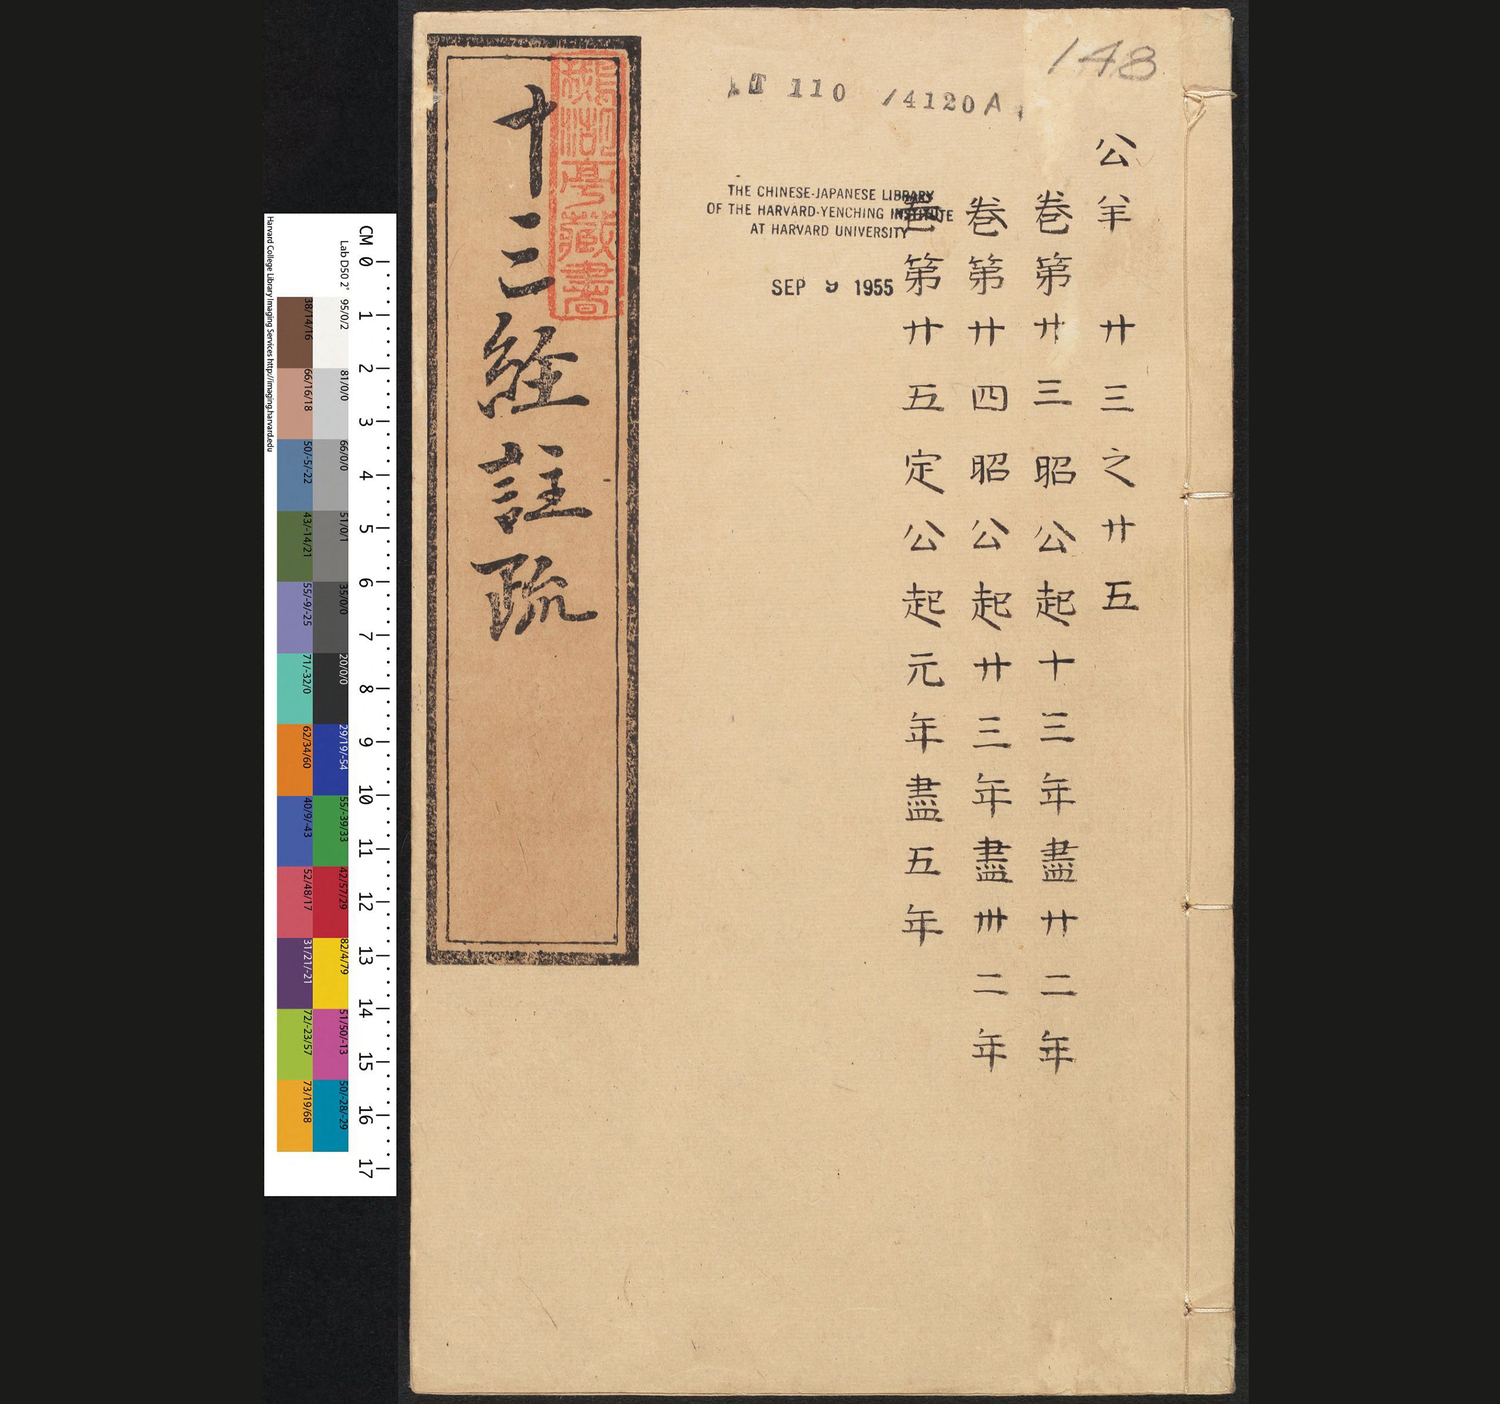 148
T 110 /4120 A
公羊 廿三之廿五
卷第廿三昭公起十三年盡廿二年
卷第廿四昭公起廿三年盡卅二年
卷第廿五定公起元年盡五年
THE CHINESE-JAPANESE LIBRARY
OF THE HARVARD-YENCHING INSTITUTE
AT HARVARD UNIVERSITY
SEP 9 1955
十三經註疏
亭藏書
CM 0 1 2 3 4 5 6 7 8 9 10 11 12 13 14 15 16 17
Lab D50 2° 95/0/2 81/0/0 66/0/0 51/0/1 35/0/0 20/0/0 29/19/-54 55/-39/33 42/57/29 82/4/79 51/50/-13 50/-28/-29
38/14/16 66/16/18 50/-5/-22 43/-14/21 55/-9/-25 71/-32/0 62/34/60 40/9/-43 52/48/17 31/21/-21 72/-23/57 73/19/68
Harvard College Library Imaging Services http://imaging.harvard.edu